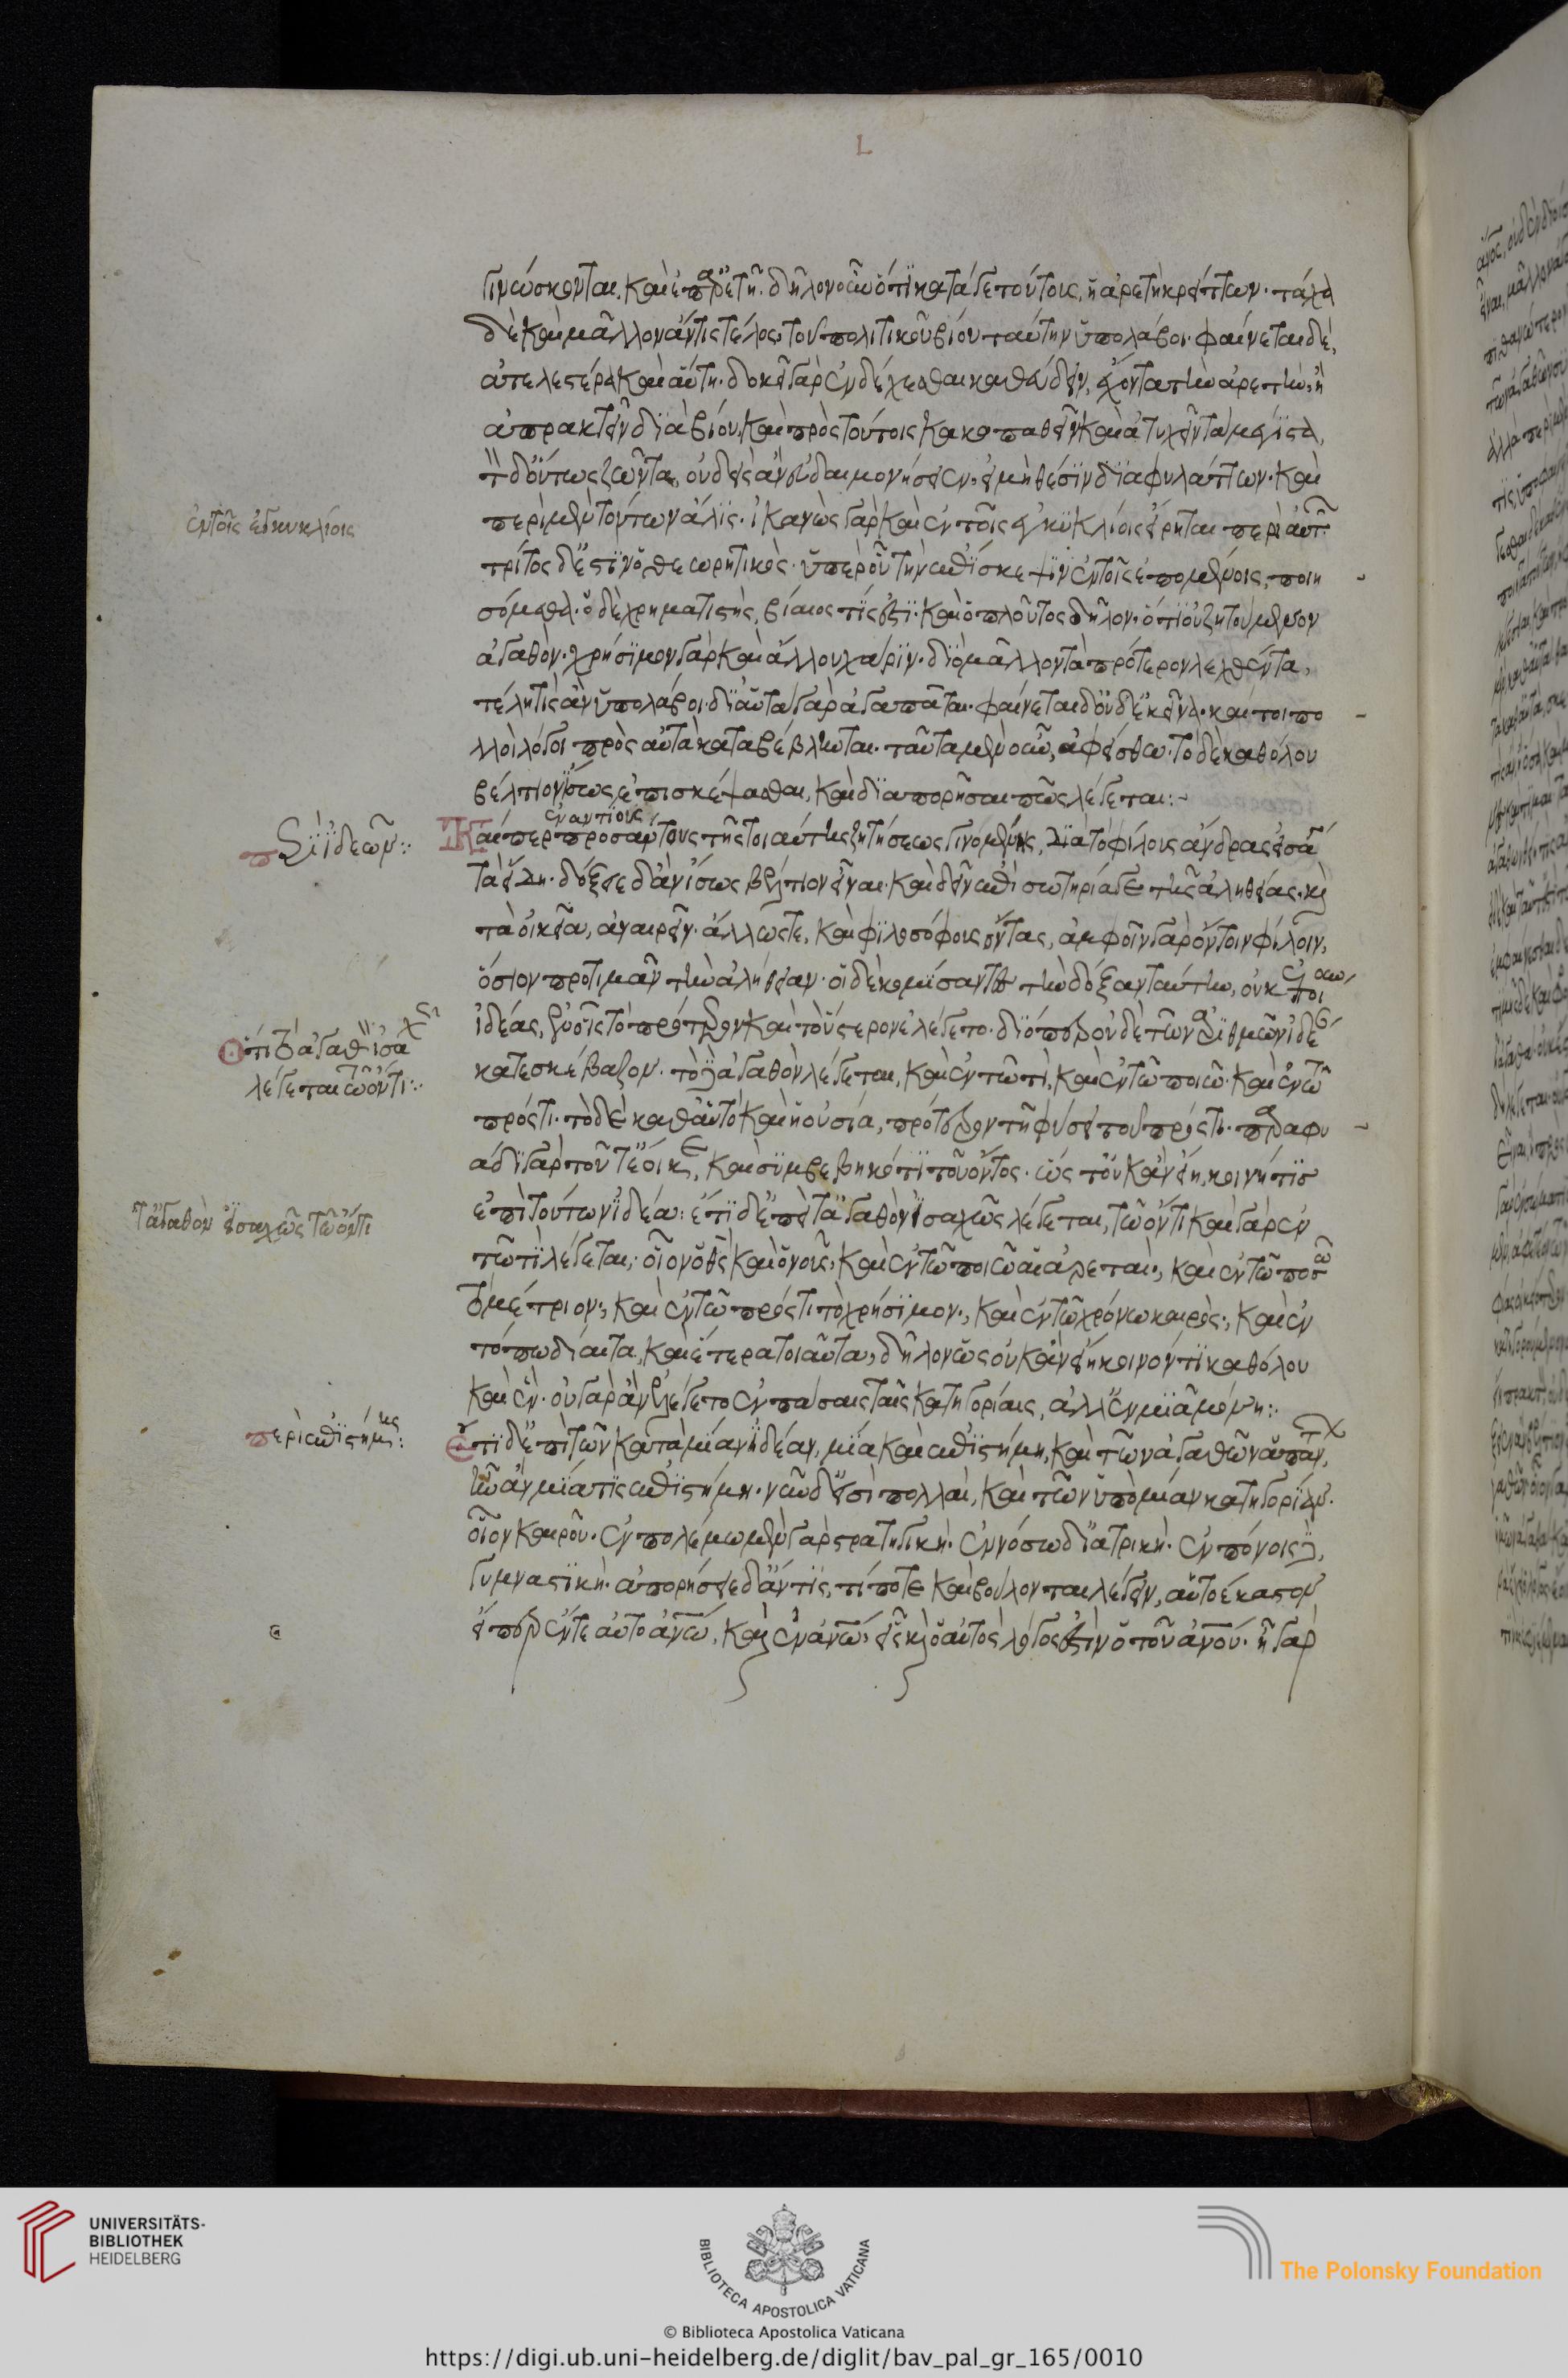 L
γινώσκονται, καὶ ἐπ' ἀρετῇ· δῆλον οὖν ὅτι κατά γε τούτους, ἡ ἀρετὴ κρείττων· τάχα
δὲ καὶ μᾶλλον ἄν τις τέλος τοῦ πολιτικοῦ βίου ταύτην ὑπολάβοι· φαίνεται δὲ,
ἀτελεστέρα καὶ αὕτη· δοκεῖ γὰρ ἐνδέχεσθαι καθεύδειν, ἔχοντα τὴν ἀρετὴν, ἢ
ἀπρακτεῖν διὰ βίου, καὶ πρὸς τούτοις κακοπαθεῖν καὶ ἀτυχεῖν τὰ μέγιστα,
τὸν δ' οὕτως ζῶντα, οὐδεὶς ἂν εὐδαιμονήσειεν, εἰ μὴ θέσιν διαφυλάττων· καὶ
περὶ μὲν τούτων ἅλις· ἱκανῶς γὰρ καὶ ἐν τοῖς ἐγκυκλίοις εἴρηται περὶ αὐτῶν·
τρίτος δ' ἐστὶν ὁ θεωρητικὸς· ὑπὲρ οὗ τὴν ἐπίσκεψιν ἐν τοῖς ἑπομένοις, ποιη
σόμεθα· ὁ δὲ χρηματιστὴς, βίαιος τίς ἐστι· καὶ ὁ πλοῦτος δῆλον, ὅτι οὐ ζητούμενον
ἀγαθὸν· χρήσιμον γὰρ καὶ ἄλλου χάριν· διὸ μᾶλλον τὰ πρότερον λεχθέντα,
τέλη τὶς ἂν ὑπολάβοι· δι' αὑτὰ γὰρ ἀγαπᾶται· φαίνεται δ' οὐδ' ἐκεῖνα· καίτοι πο
λλοὶ λόγοι πρὸς αὐτὰ καταβέβληνται· ταῦτα μὲν οὖν, ἀφείσθω· τὸ δὲ καθόλου
βέλτιον ἴσως, ἐπισκέψασθαι, καὶ διαπορῆσαι πῶς λέγεται:-
ἐναντίους
Καίπερ προσάντους τῆς τοιαύτης ζητήσεως γινομένης, διὰ τὸ φίλους ἄνδρας εἰσα
τὰ εἴδη· δόξειε δ' ἂν ἴσως βέλτιον εἶναι· καὶ δεῖν ἐπὶ σωτηρία γε τῆς ἀληθείας, καὶ
τὰ οἰκεῖα, ἀναιρεῖν· ἄλλως τε, καὶ φιλοσόφους ὄντας, ἀμφοῖν γὰρ ὄντοιν φίλοιν,
ὅσιον προτιμᾶν τὴν ἀλήθειαν· οἱ δὲ κομίσαντες τὴν δόξαν ταύτην, οὐκ ἐποίουν
ἰδέας, ἐν οἷς τὸ πρότερον καὶ τὸ ὕστερον ἔλεγετο· διόπερ οὐδὲ τῶν ἀριθμῶν ἰδέ
κατεσκέβαζον· τὸ δ' ἀγαθὸν λέγεται, καὶ ἐν τῶ τί, καὶ ἐν τῶ ποιῶ· καὶ ἐν τῶ
πρός τι· τὸ δὲ καθ' αὑτὸ καὶ ἡ οὐσία, πρότερον τῆ φύσει τοῦ πρός τι· παραφυ
άδι γὰρ τοῦτ' ἔοικε, καὶ συμβεβηκότι τοῦ ὄντος· ὥστ' οὐκ ἂν εἴη, κοινή τις
ἐπὶ τούτων ἰδέα: ἔτι δ' ἐπεὶ τἀγαθὸν ἰσαχῶς λέγεται, τῶ ὄντι καὶ γὰρ ἐν
τῶ τὶ λέγεται, οἷον ὁ θεὸς καὶ ὁ νοῦς, καὶ ἐν τῶ ποιῶ αἱ ἀρεταὶ, καὶ ἐν τῶ ποσῶ
τὸ μέτριον, καὶ ἐν τῶ πρός τι τὸ χρήσιμον, καὶ ἐν τῶ χρόνω καιρὸς, καὶ ἐν
τόπω δίαιτα, καὶ ἕτερα τοιαῦτα, δῆλον ὡς οὐκ ἂν εἴη κοινόν τι καθόλου
καὶ ἓν· οὐ γὰρ ἂν ἐλέγετο ἐν πάσαις ταῖς κατηγορίαις, ἀλλ' ἐν μιᾶ μόνη:
ἔτι δ' ἐπεὶ τῶν κατὰ μίαν ἰδέαν, μία καὶ ἐπιστήμη, καὶ τῶν ἀγαθῶν ἁπάντων,
ἦν ἂν μία τις ἐπιστήμη· νῦν δ' εἰσὶ πολλαὶ, καὶ τῶν ὑπὸ μίαν κατηγορίαν·
οἷον καιροῦ· ἐν πολέμω μὲν γὰρ στρατηγικὴ· ἐν νόσω δ' ἰατρικὴ· ἐν πόνοις δὲ,
γυμναστικὴ· ἀπορήσειε δ' ἄν τις, τί ποτε καὶ βούλονται λέγειν, αὐτοέκαστον
εἴπερ ἔν τε αὐτοανῶ, καὶ ἐν ἀνῶ, εἷς καὶ ὁ αὐτὸς λόγος ἐστὶν ὁ τοῦ ἀνου· ἧ γὰρ
ἐν τοῖς ἐγκυκλίοις
περὶ ἰδεῶν:
Ὅτι τὸ ἀγαθὸν ἰσαχῶς
λέγεται τῶ ὄντι:
Τἀγαθὸν ἰσαχῶς τῶ ὄντι
περὶ ἐπιστήμης:
UNIVERSITÄTS-
BIBLIOTHEK
HEIDELBERG
BIBLIOTECA APOSTOLICA VATICANA
The Polonsky Foundation
© Biblioteca Apostolica Vaticana
https://digi.ub.uni-heidelberg.de/diglit/bav_pal_gr_165/0010